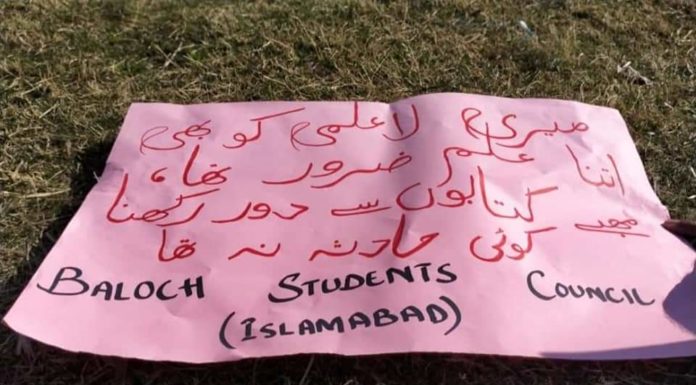 میری لاعلمی کو بھی
اتنا علم ضرور تھا،
کتابوں سے دور رکھنا
مجھے کوئی حادثہ نہ تھا
BALOCH STUDENTS COUNCIL
(ISLAMABAD)